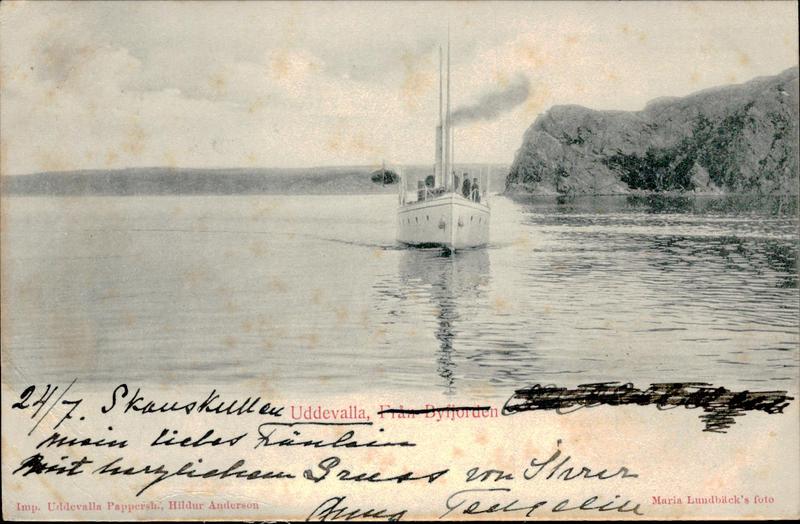 24/7. Skanskullen Uddevalla, Från Byfjorden
mein liebes Fräulein
Mit herzlichem Gruss von Ihrer
Anny
Imp. Uddevalla Pappersh., Hildur Anderson
Maria Lundbäck's foto